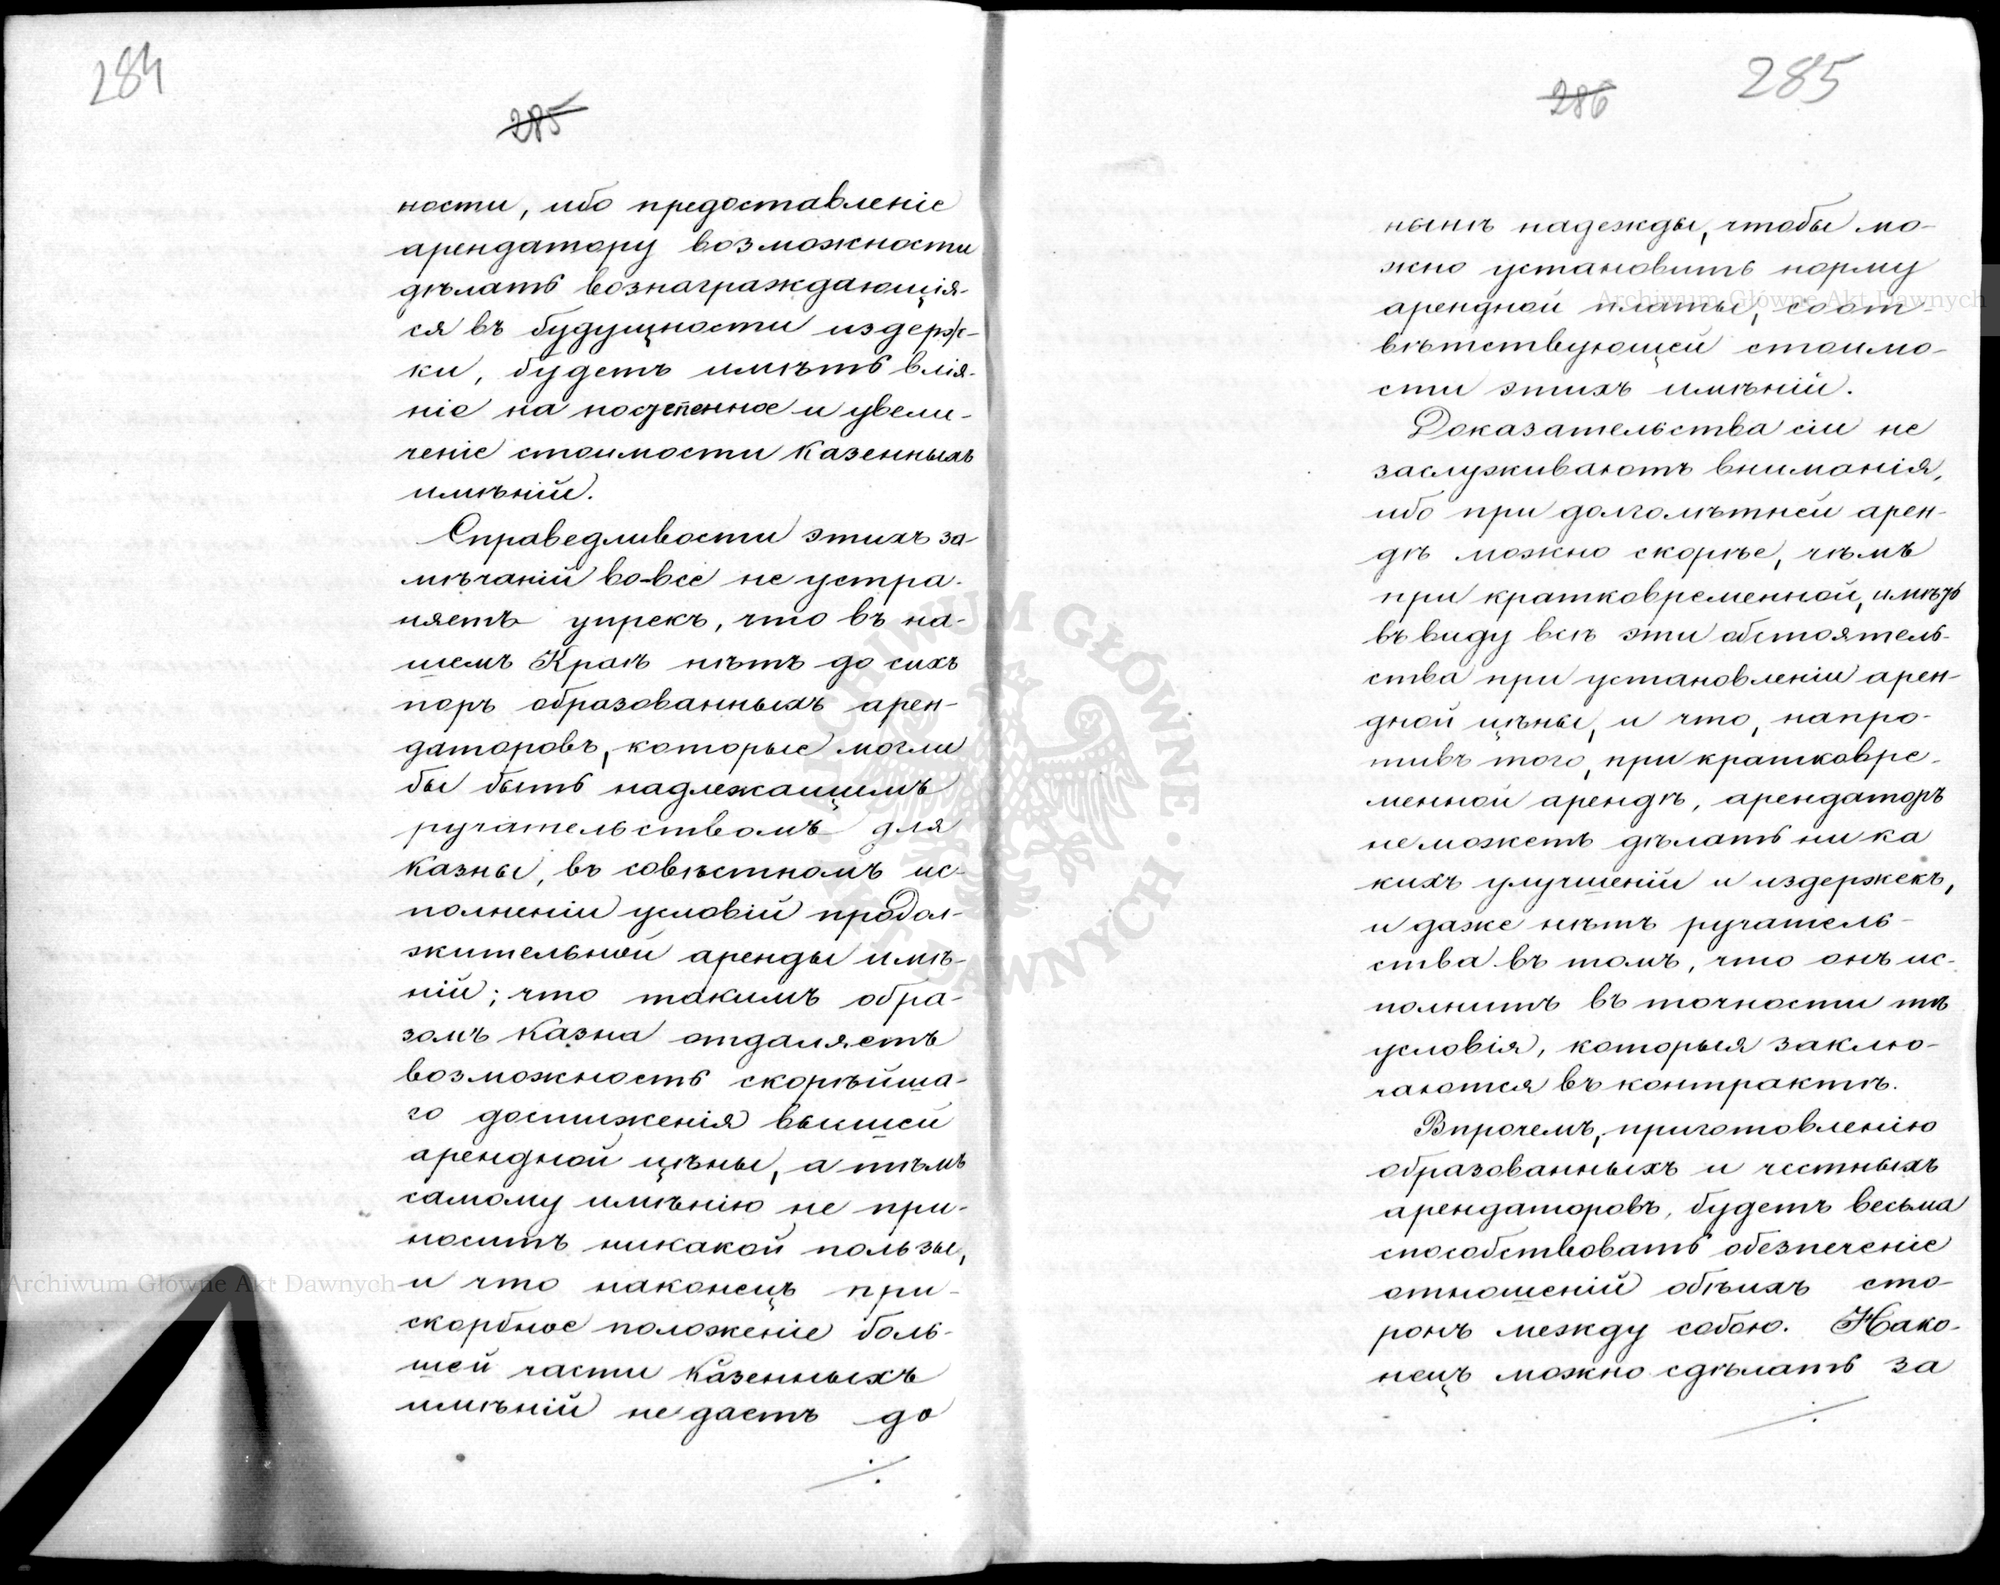 284
285
ности, ибо предоставленіе
арендатору возможности
дѣлать вознаграждающія-
ся въ будущности издерж-
ки, будетъ имѣть влія-
ніе на постепенное и увели-
ченіе стоимости казенныхъ
имѣній.
Справедливости этихъ за-
мѣчаній во-все не устра-
няетъ упрекъ, что въ на-
шемъ Краѣ нѣтъ до сихъ
поръ образованныхъ арен-
даторовъ, которые могли
бы быть надлежащимъ
ручательствомъ для
казны, въ совѣстномъ ис-
полненіи условій продол-
жительной аренды имѣ-
ній; что такимъ обра-
зомъ Казна отдаляетъ
возможность скорѣйша-
го достиженія высшей
арендной цѣны, а тѣмъ
самому имѣнію не при-
носитъ никакой пользы,
и что наконецъ при-
скорбное положеніе боль-
шей части Казенныхъ
имѣній не даетъ до
286
285
нынѣ надежды, чтобы мо-
жно установить норму
арендной платы, соот-
вѣтствующей стоимо-
сти этихъ имѣній.
Доказательства сіи не
заслуживаютъ вниманія,
ибо при долголѣтней арен-
дѣ можно скорѣе, чѣмъ
при кратковременной, имѣть
въ виду всѣ эти обстоятель-
ства при установленіи арен-
дной цѣны, и что, напро-
тивъ того, при кратковре-
менной арендѣ, арендаторъ
не можетъ дѣлать ни ка
кихъ улучшеній и издержекъ,
и даже нѣтъ ручатель-
ства въ томъ, что онъ ис-
полнитъ въ точности тѣ
условія, которыя заклю-
чаются въ контрактѣ.
Впрочемъ, приготовленію
образованныхъ и честныхъ
арендаторовъ, будетъ весьма
способствовать обезпеченіе
отношеній обѣихъ сто-
ронъ между собою. Нако-
нецъ можно сдѣлать за
Archiwum Główne Akt Dawnych
Archiwum Główne Akt Dawnych
ARCHIWUM GŁÓWNE AKT DAWNYCH